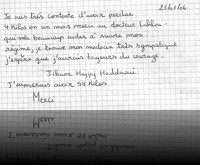 21/01/06
Je suis très contente d'avoir perdue
4 Kilos en un mois merci au docteur Lahlou
qui m'a beaucoup aider à suivre mon
régime, je trouve mon médecin très sympatique
j'espère que j'aurais toujours du courage.
Jihane Hajjy Haddaoui
J'aimerais avoir 58 Kilos.
Merci